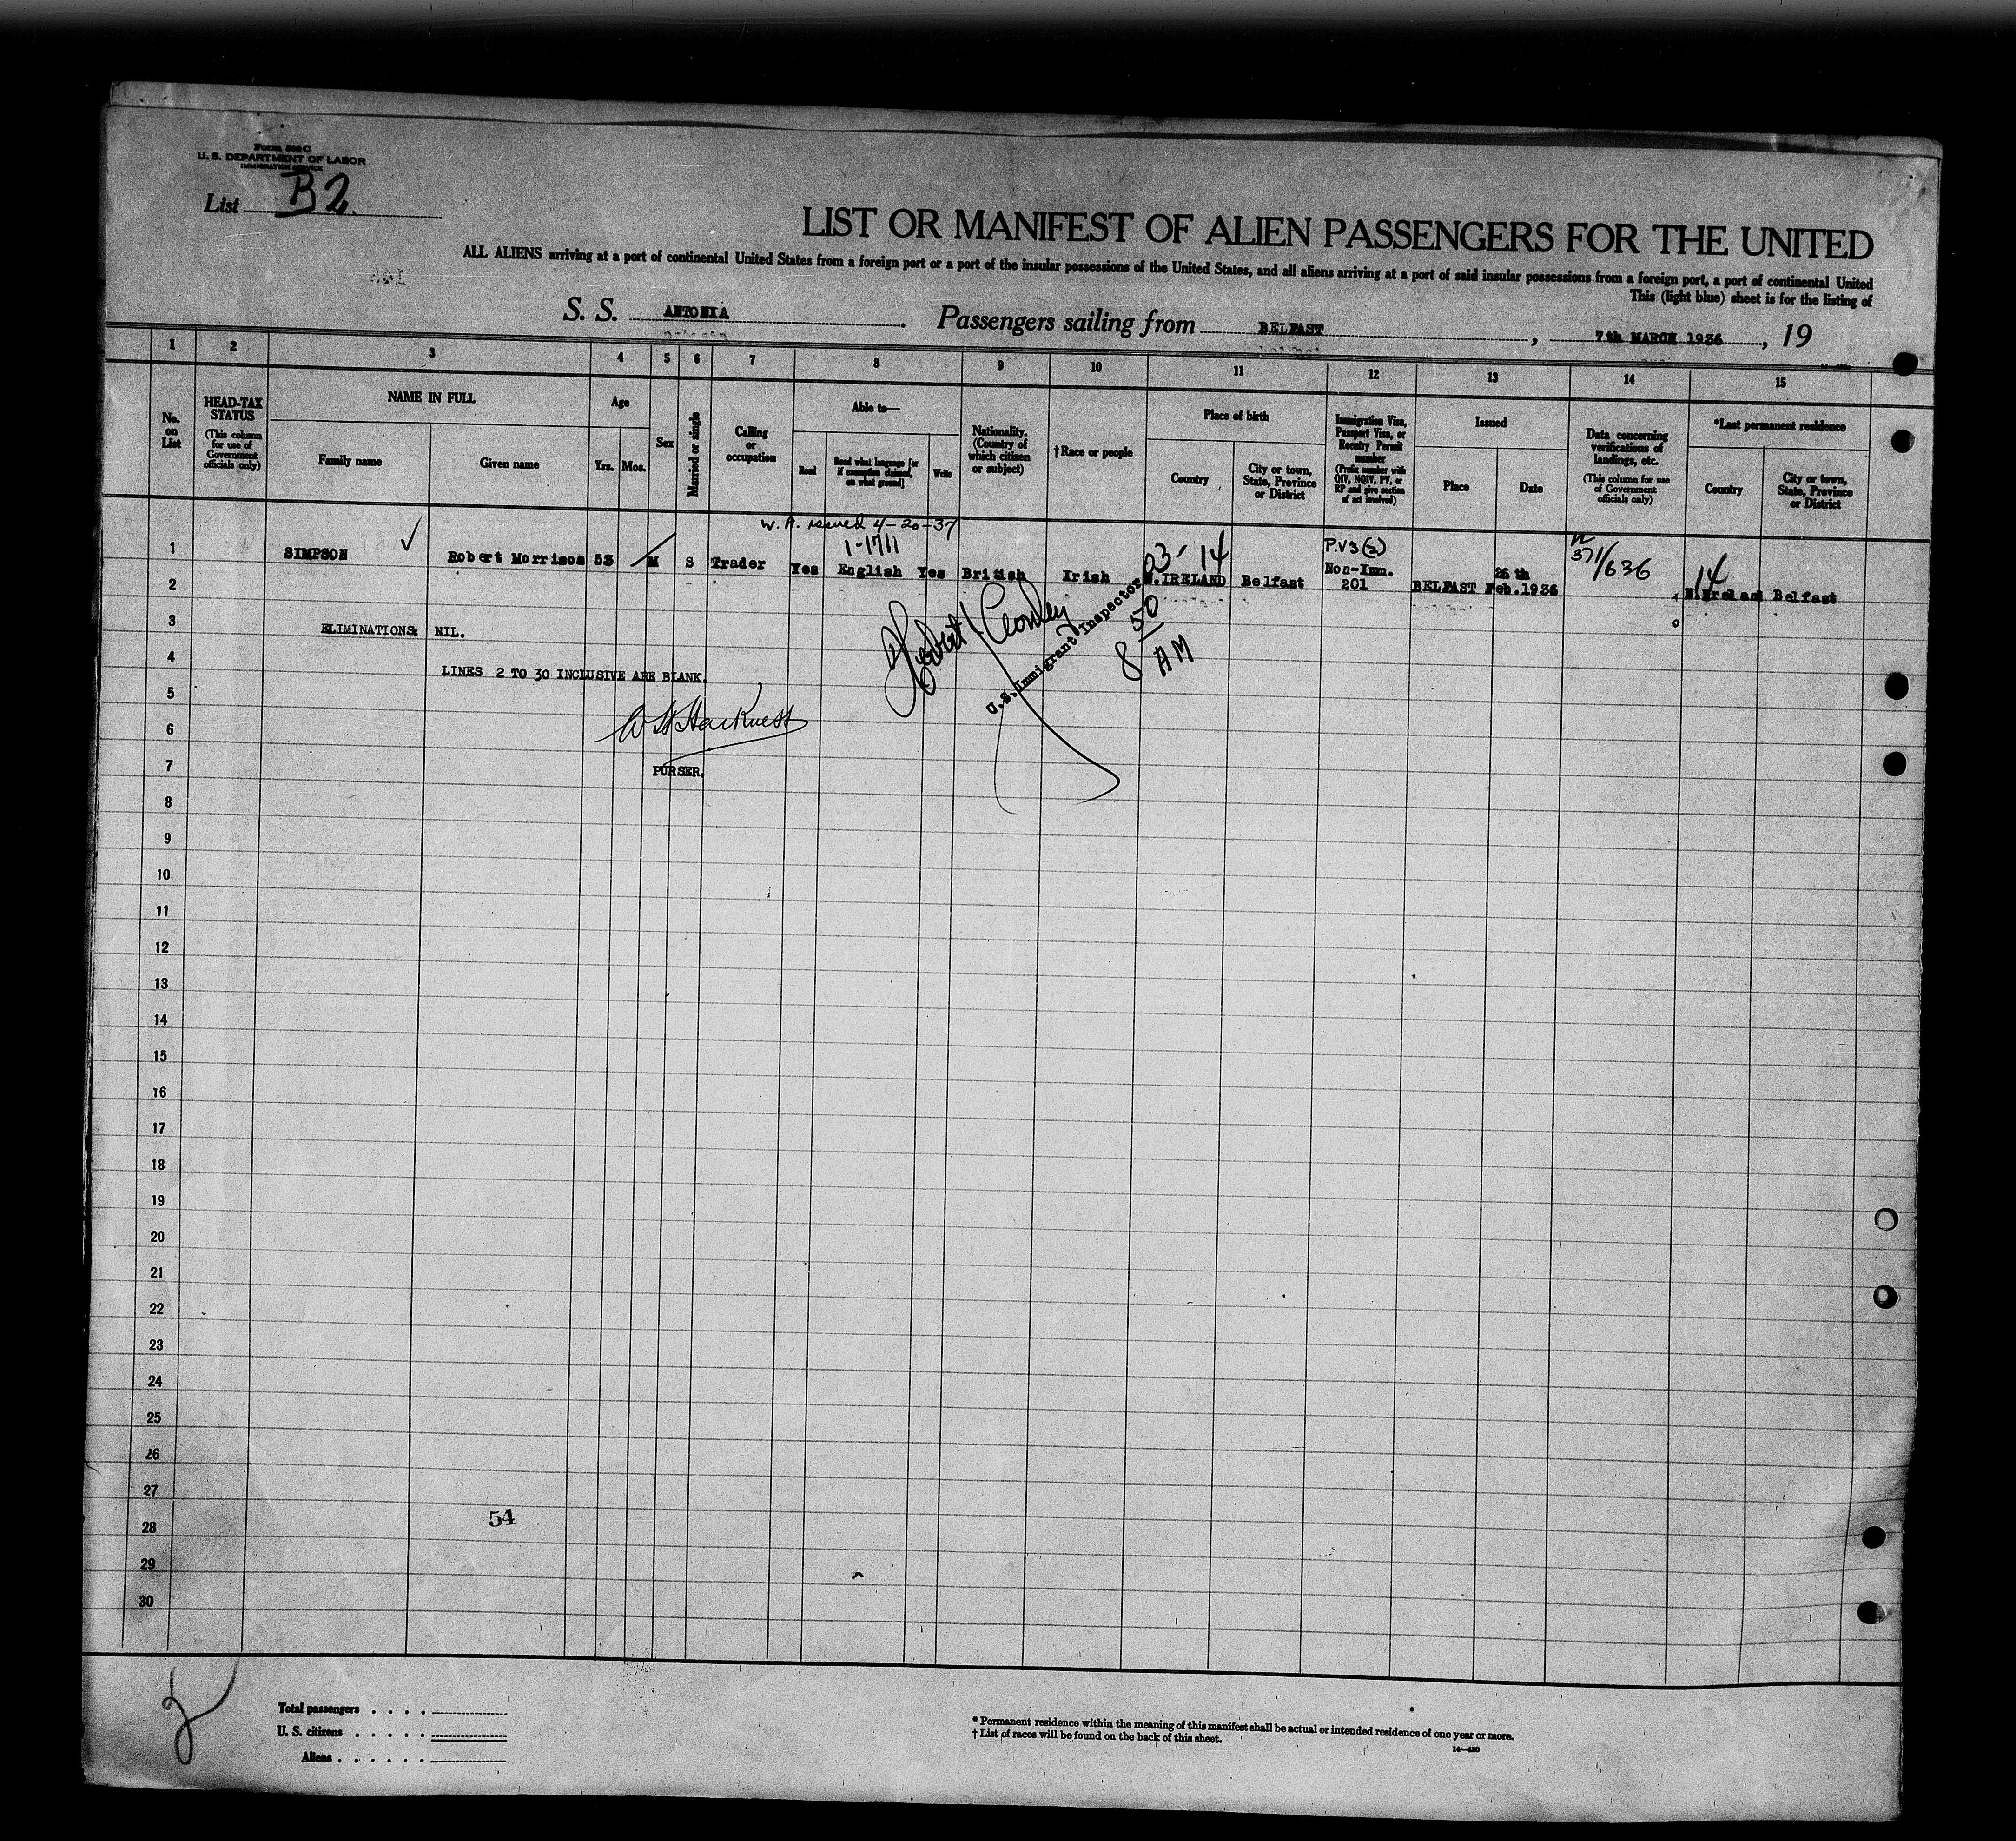 U. S. DEPARTMENT OF LABOR
List B2.
LIST OR MANIFEST OF ALIEN PASSENGERS FOR THE UNITED
ALL ALIENS arriving at a port of continental United States from a foreign port or a port of the insular possessions of the United States, and all aliens arriving at a port of said insular possessions from a foreign port, a port of continental United
This (light blue) sheet is for the listing of
S. S. ANTONIA. Passengers sailing from BELFAST, 7th MARCH 1936, 19
1 2 3 4 5 6 7 8 9 10 11 12 13 14 15
No. on List
HEAD-TAX STATUS
(This column for use of Government officials only)
NAME IN FULL
Family name
Given name
Age
Yrs. Mos.
Sex
Married or single
Calling or occupation
Able to—
Read
Read what language [or if exemption claimed, on what ground]
Write
Nationality. (Country of which citizen or subject)
†Race or people
Place of birth
Country
City or town, State, Province or District
Immigration Visa, Passport Visa, or Reentry Permit number
(Prefix number with QIV, NQIV, PV, or RP and give section of act involved)
Issued
Place
Date
Data concerning verifications of landings, etc.
(This column for use of Government officials only)
*Last permanent residence
Country
City or town, State, Province or District
W. A. issued 4-20-37
1-1711
03' 14
P.V 3(2)
371/636
14
1 SIMPSON ✓ Robert Morrison 53 M S Trader Yes English Yes British Irish N.IRELAND Belfast Non-Imm. 201 BELFAST 26th Feb.1936 N.Ireland Belfast
2
3 ELIMINATIONS: NIL.
4 LINES 2 TO 30 INCLUSIVE ARE BLANK.
U.S. Immigrant Inspector
8 50 AM
5
6 W H Harkness
7 PURSER.
8
9
10
11
12
13
14
15
16
17
18
19
20
21
22
23
24
25
26
27
28 54
29
30
2
Total passengers . . . .
U. S. citizens . . . . .
Aliens . . . . . .
* Permanent residence within the meaning of this manifest shall be actual or intended residence of one year or more.
† List of races will be found on the back of this sheet.